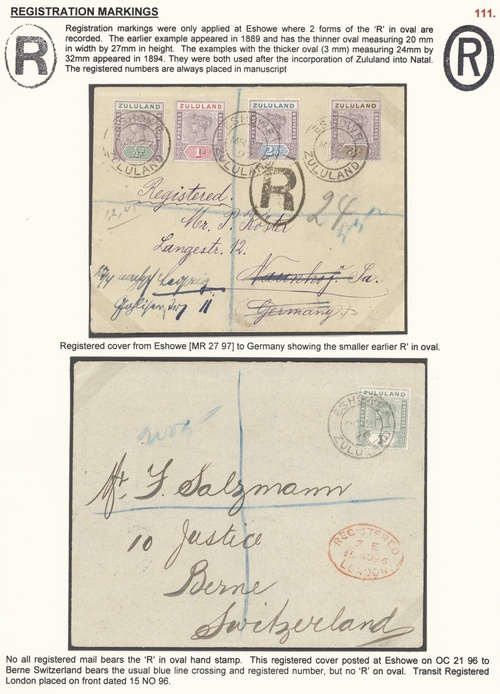 REGISTRATION MARKINGS
111.
Registration markings were only applied at Eshowe where 2 forms of the 'R' in oval are
recorded. The earlier example appeared in 1889 and has the thinner oval measuring 20 mm
in width by 27mm in height. The examples with the thicker oval (3 mm) measuring 24mm by
32mm appeared in 1894. They were both used after the incorporation of Zululand into Natal.
The registered numbers are always placed in manuscript
R
R
ZULULAND ZULULAND ZULULAND ZULULAND
ESHOWE
ZULULAND
ESHOWE
ZULULAND
ESHOWE
ZULULAND
R
Registered.
24
Mr. P. Köster
Langestr. 12.
Leipzig
Naunhof. Sa.
Germany
Registered cover from Eshowe [MR 27 97] to Germany showing the smaller earlier R' in oval.
ZULULAND
ESHOWE
ZULULAND
Mr. F. Salzmann
10 Justice
Berne
Switzerland
REGISTERED
LONDON
No all registered mail bears the 'R' in oval hand stamp. This registered cover posted at Eshowe on OC 21 96 to
Berne Switzerland bears the usual blue line crossing and registered number, but no 'R' on oval. Transit Registered
London placed on front dated 15 NO 96.